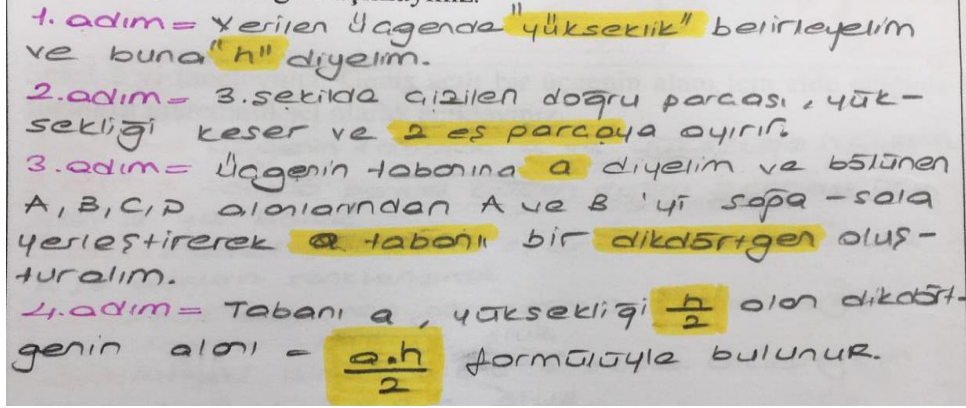 1. adım = Verilen üçgende "yükseklik" belirleyelim
ve buna "h" diyelim.
2. adım = 3. şekilde çizilen doğru parçası, yük-
sekliği keser ve 2 eş parçaya ayırır.
3. adım = Üçgenin tabanına a diyelim ve bölünen
A, B, C, D alanlarından A ve B 'yi sağa - sola
yerleştirerek a tabanlı bir dikdörtgen oluş-
turalım.
4. adım = Tabanı a, yüksekliği h/2 olan dikdört-
genin alanı = a.h/2 formülüyle bulunur.